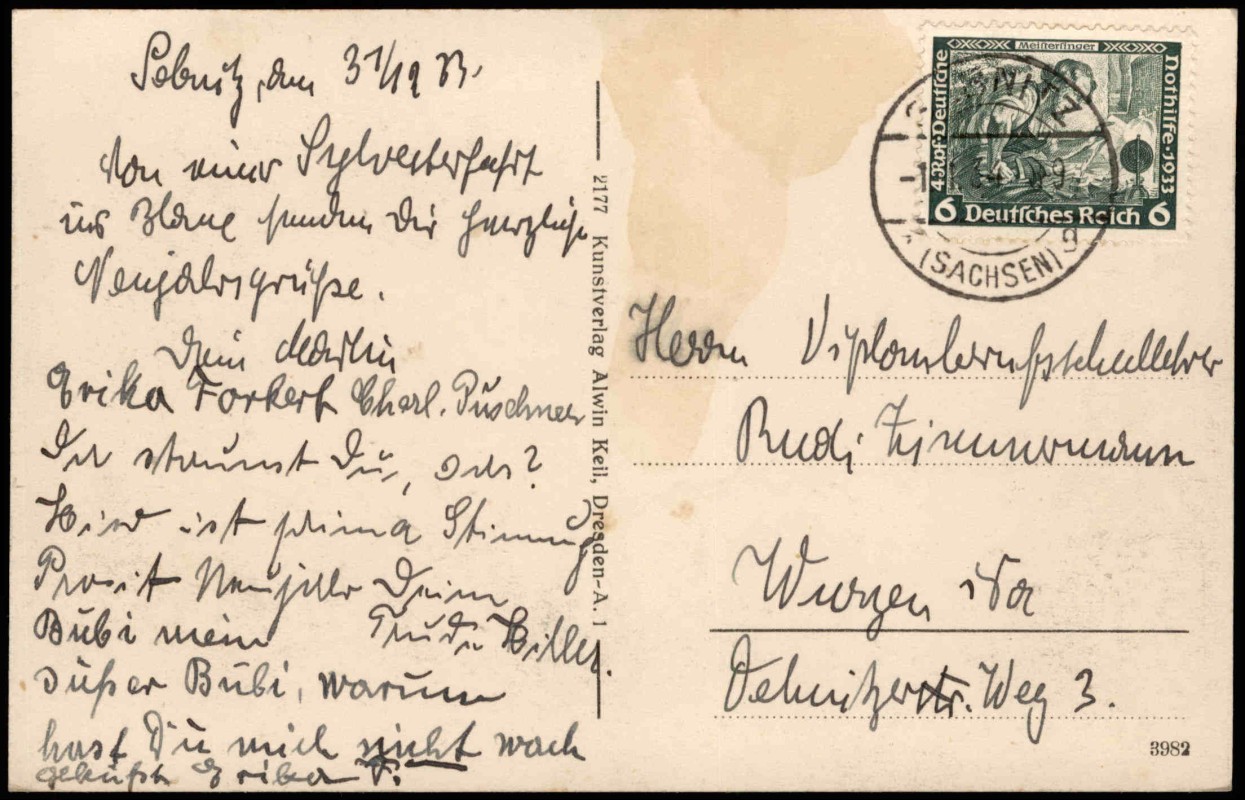 Sebnitz, den 31/12 33.
Von einer Sylvesterfahrt
ins Blaue senden Dir herzliche
Neujahrsgrüße.
Dein Martin
Erika Forkert Charl. Püschner
Da staunst Du, was?
Hier ist prima Stimmung
Prosit Neujahr Dein
Bübi mein Trude Hiller.
süßer Bübi, warum
hast Du mich nicht wach
geküßt Erika F.
2177 Kunstverlag Alwin Keil, Dresden-A. 1
Meistersinger
4 Rpf·Deutsche
Nothilfe·1933
6 Deutsches Reich 6
(SACHSEN)
Herrn Diplomberufsschullehrer
Rudi Zimmermann
Wurzen i/Sa
Weg 3.
3982